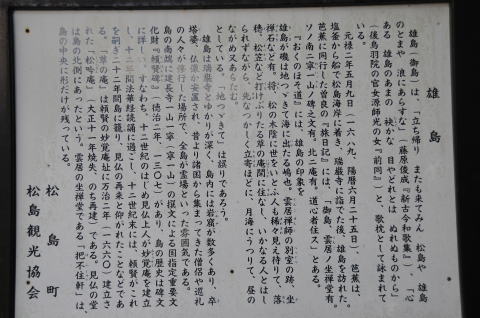 雄島
雄島(御島)は、「立ち帰り またも来てみん 松島や 雄島
のとまや 浪にあらすな」(藤原俊成『新古今和歌集』)、「心
ある 雄島のあまの 袂かな 月やどれとは ぬれぬものから」
(後鳥羽院の官女源師光の女『前同』) 歌枕として詠まれて
いる。
元禄二年五月九日(一六八九、陽暦六月二十五日)、芭蕉は、
塩釜から船で松島海岸に着き、瑞巌寺に詣でた後、雄島を訪れた。
芭蕉に同行した曽良の『旅日記』には、「御島、雲居ノ坐禅堂有。
ソノ南ニ寧一山ノ碑之文有。北ニ庵有。道心者住ス」とある。
『おくのほそ道』には、雄島の印象を
雄島が磯は地つゞきて海に出たる嶋也。雲居禅師の別室の跡、坐
禅石など有。将、松の木陰に世をいとふ人も稀々見え待りて、落
穂、松笠など打けぶりたる草の庵閑に住なし、いかなる人とはし
られずながら、先なつかしく立寄ほどに、月海にうつりて、昼の
ながめ又あらたむ。
としている。「地つゞきて」は誤りであろう。
雄島は瑞巌寺とゆかりが深く、島内には岩窟が数多くあり、卒
塔婆、仏像が安置され、昔より諸国から集まってきた僧侶や巡礼
の人々が修行した場所で、全島が霊場といった雰囲気である。
島の南端に建長寺一山一寧(寧一山)の撰文による国指定重要文
化財『頼賢碑』(徳治二年、一三〇七)があり、島の歴史は碑文
に詳しい。すなわち、十二世紀のはじめ見仏上人が妙覚庵を建立
し、十二年間法華経読誦に過ごし、十三世紀末には、頼賢がこれ
を嗣ぎ二十二年間島に籠り、見仏の再来と仰がれたことなどであ
る。「草の庵」は頼賢の妙覚庵址に万治二年(一六六〇)建立さ
れた「松吟庵」(大正十一年焼失、のち再建)である。見仏の堂
は島の北側にあったという。雲居の坐禅堂である「把不住軒」は、
島の中央に形だけが残っている。
松島町
松島観光協会